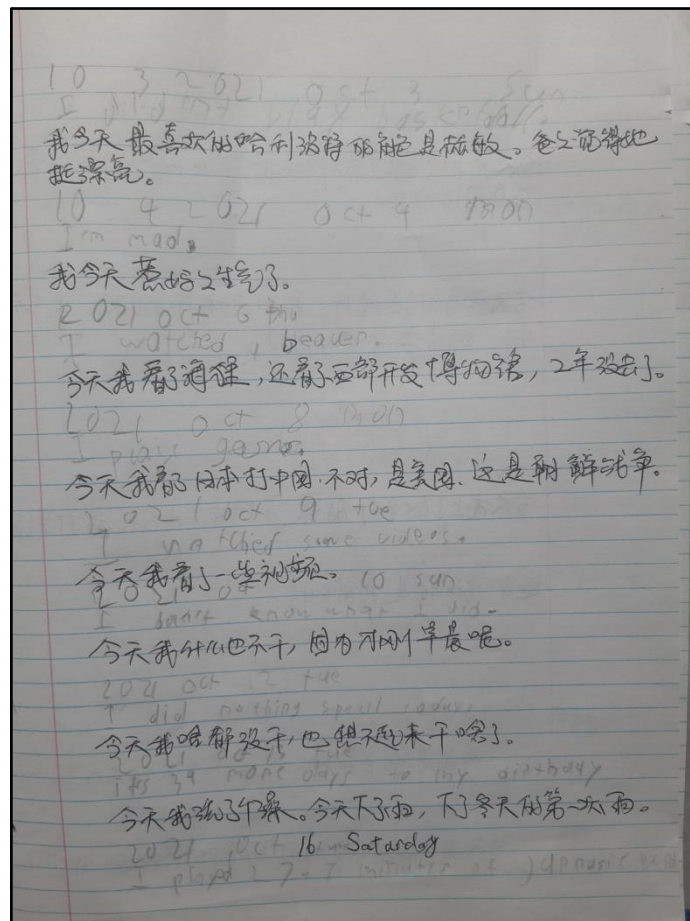 10 3 2021 oct 3 Sun
I did int play basketball.
我今天最喜欢的哈利波特的角色是赫敏。爸爸觉得她
挺漂亮。
10 4 2021 oct 4 mon
Im mad.
我今天惹妈妈生气了。
2021 oct 6 thu
I watched, beaver.
今天我看了海狸,还看了西部开发博物馆,2年没去了。
2021 oct 8 mon
I play game.
今天我看了日本打中国.不对,是美国.这是朝鲜战争。
2021 oct 9 tue
I watched some videos.
今天我看了一些视频。
2021 10 sun
I know what I did.
今天我什么也不干,因为才刚早晨呢。
2021 oct 12 tue
I did nothing today.
今天我啥都没干,也想不起来干啥了。
2021 tue
its 39 more days to my birthday
今天我洗了个澡。今天下了雨,下了冬天的第一次雨。
2021 oct 16 Satarday
I played 27 minutes of